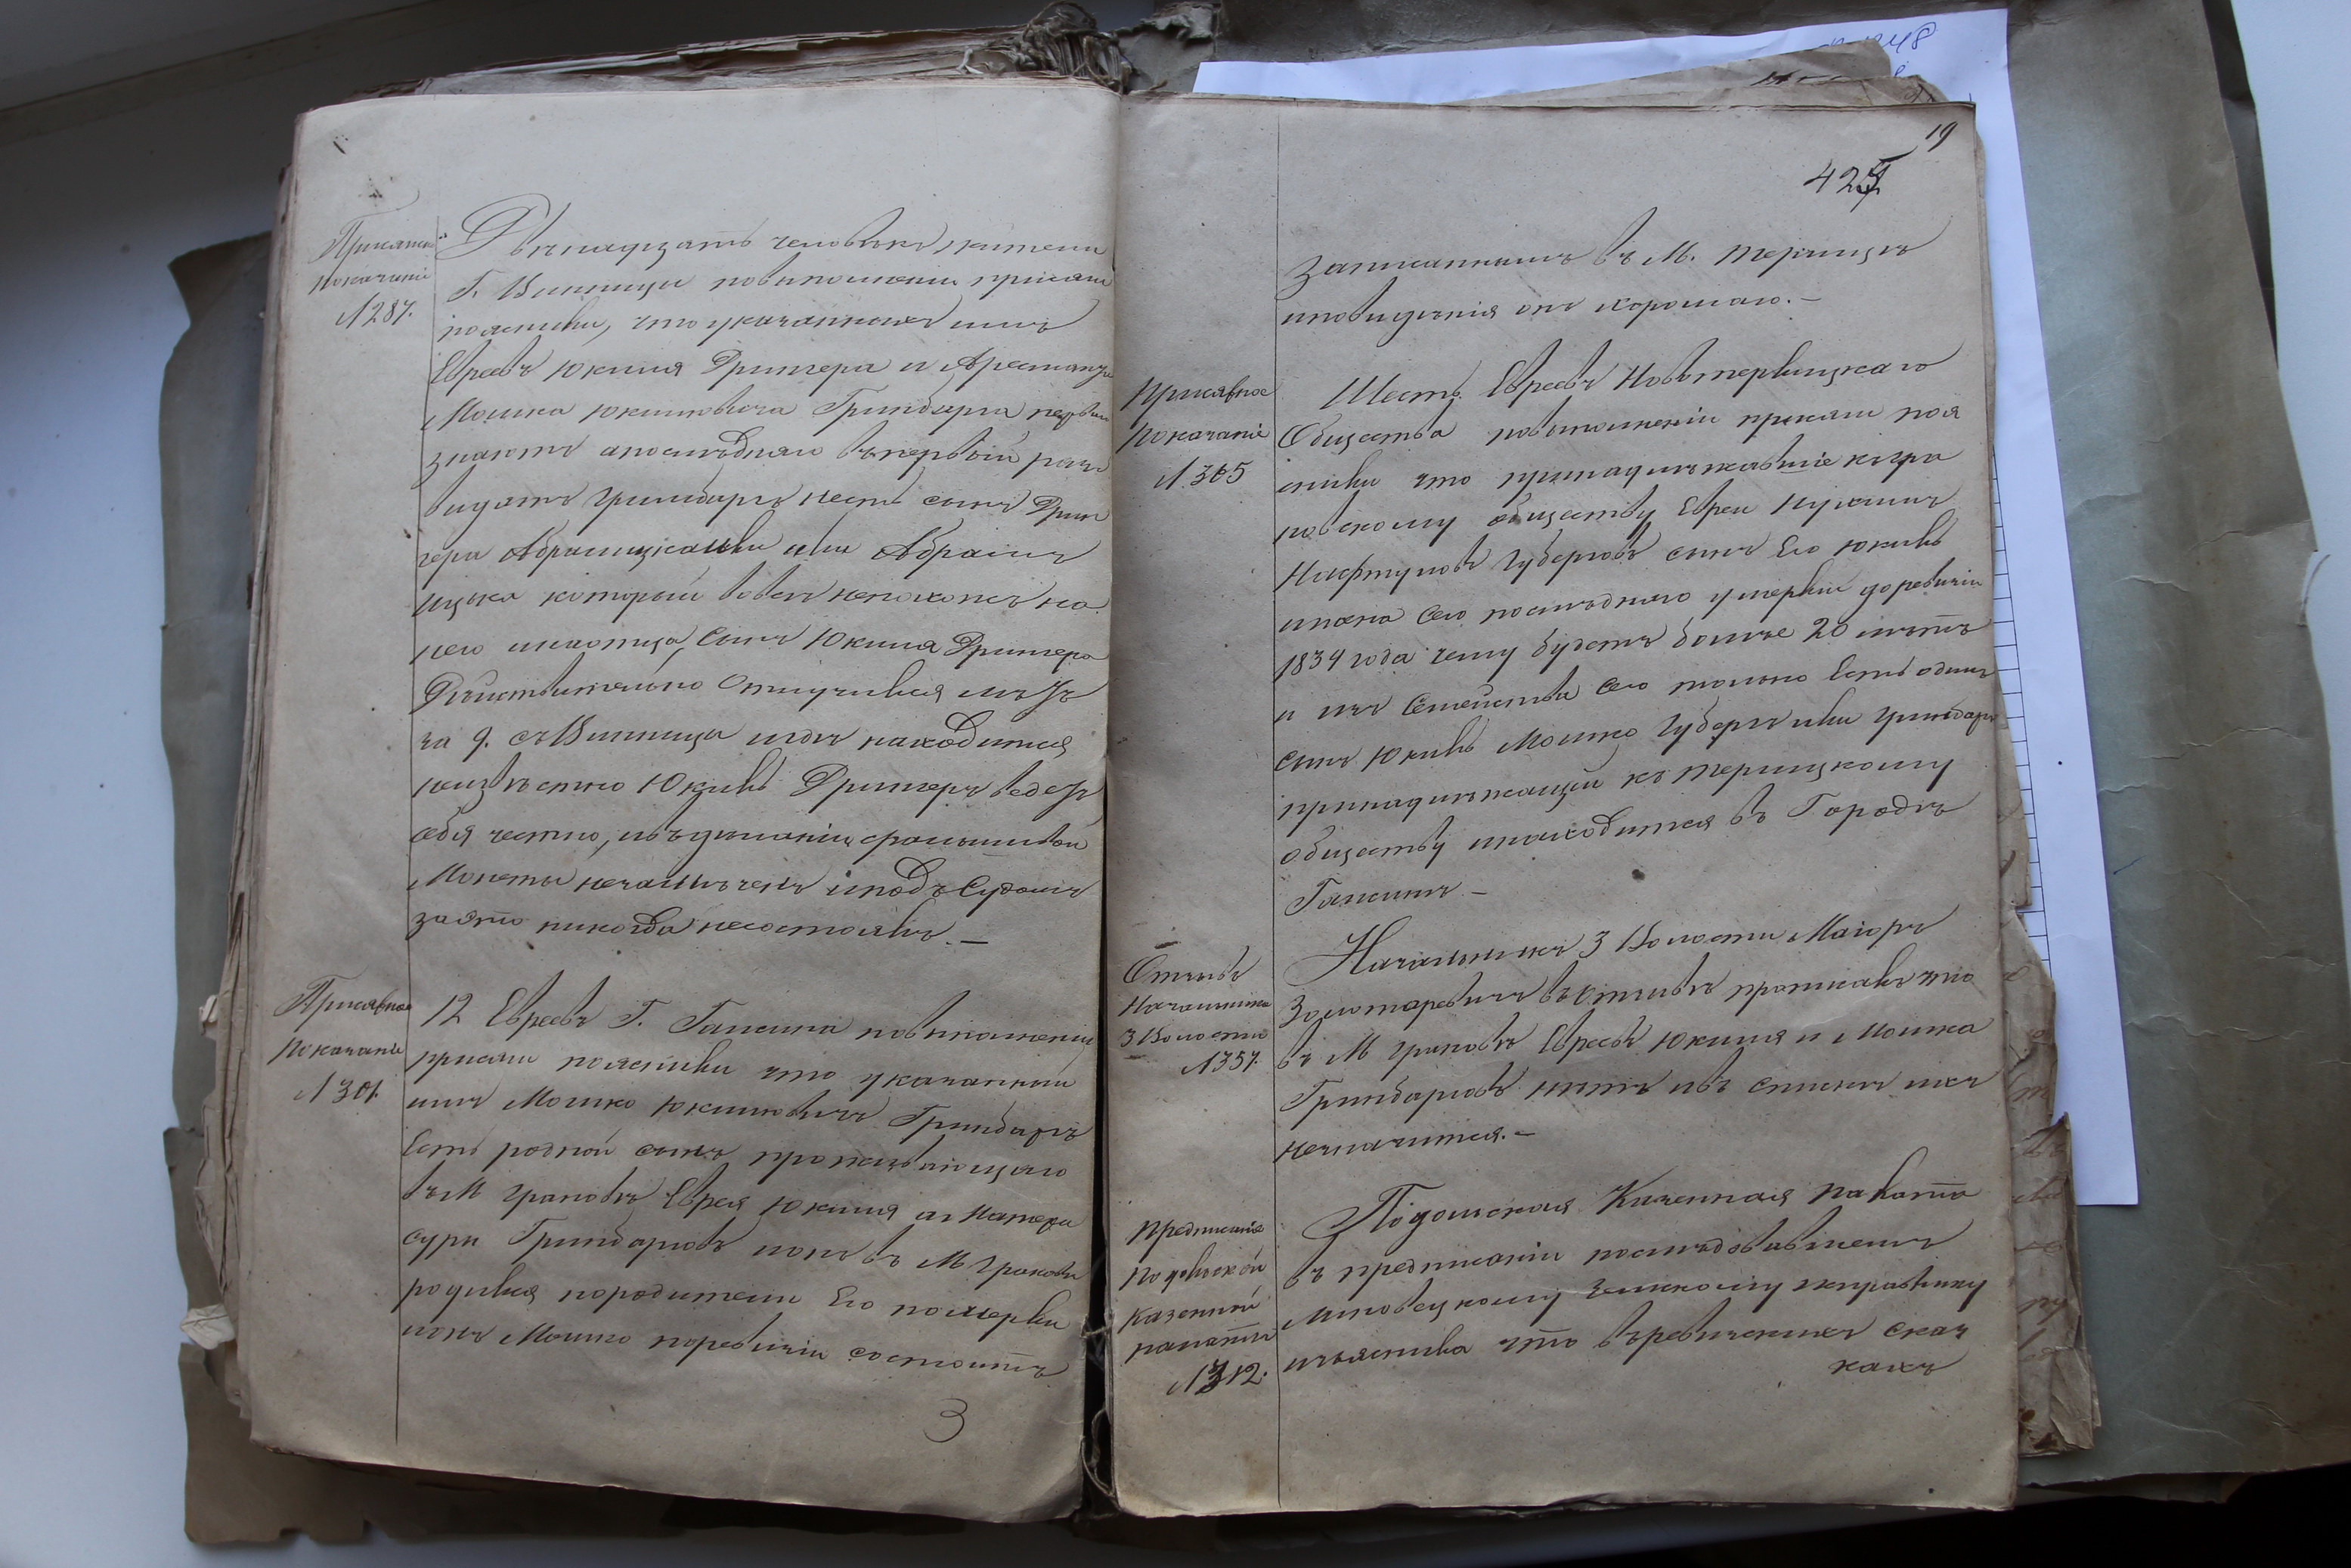 Присяжн.
показаніе
л 287.
Двѣнадцать человѣкъ жители
Г. Винницы повыполненіи присяги
пояснили, что указанныхъ имъ
Евреевъ Юкиля Дрингера и Арестанта
Мошка Юкилювича Гринберга первыи
знаютъ апослѣдняго въпервый разъ
видятъ Гринбергъ несть сынъ Дрин
гера Абрамицкаили или Абрамъ
Ицька который вовсе непохожъ на
него инаотца, сынъ Юкиля Дрингера
Дѣйствительно Отлучился
съВинницы игдѣ находится
неизвѣстно Юкиль Дрингеръ ведетъ
себя честно, ивъдѣланіи фальшивой
Монеты незамѣченъ иподъ Судомъ
заэто никогда несостоялъ. —
Присяжное
показаніе
л 301.
12 Евреевъ Г. Гайсина повыполненіи
присяги пояснили что указанный
имъ Мошко Юкилювичъ Гринбергъ
Есть родной сынъ проживающаго
въМ Грановѣ Еврея Юкиля и Матери
Суры Гринберговъ ионъ въ М Грановѣ
родился породители Его померли
ионъ Мошко поревизіи состоитъ
3
19
427
записаннымъ въ М. Терлицѣ
иповѣденія онъ хорошаго. —
Присяжное
показаніе
л 305
Шесть Евреевъ Новотерлицкаго
Общества повыполненіи присяги поя
снили что принадлежавшіе къгра
новскому обществу Евреи Нухимъ
Нафтуловъ Губергъ сынъ Его Юкиль
ижена сего послѣдняго умерли доревизіи
1834 года чему будетъ больше 20 лѣтъ
и изъ Семейства сего только Есть одинъ
сынъ Юкиль Мошко Губергъ или Гринбергъ
принадлежащій къ Терлицкому
обществу инаходится въ Городѣ
Гайсинѣ. —
Отзывъ
Начальника
3 Волости
л 357.
Начальникъ 3 Волости Маіоръ
Золотаревичъ въотзывѣ прописалъ что
въ М Грановѣ Евреевъ Юкиля и Мошка
Гринберговъ нѣтъ ивъ спискѣ ихъ
незначится. —
Предписаніе
Подольской
казенной
палаты
л 312.
Подольская Казенная палата
въ предписаніи послѣдовавшемъ
Липовецкому Земскому исправнику
изъяснила что въревизскихъ сказ
кахъ